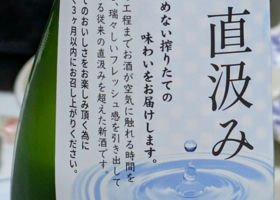 直汲み
めない搾りたての
味わいをお届けします。
工程までお酒が空気に触れる時間を
、瑞々しいフレッシュ感を引き出して
る従来の直汲みを超えた新酒です。
のおいしさをお楽しみ頂く為に
く3ヶ月以内にお召し上がりください。